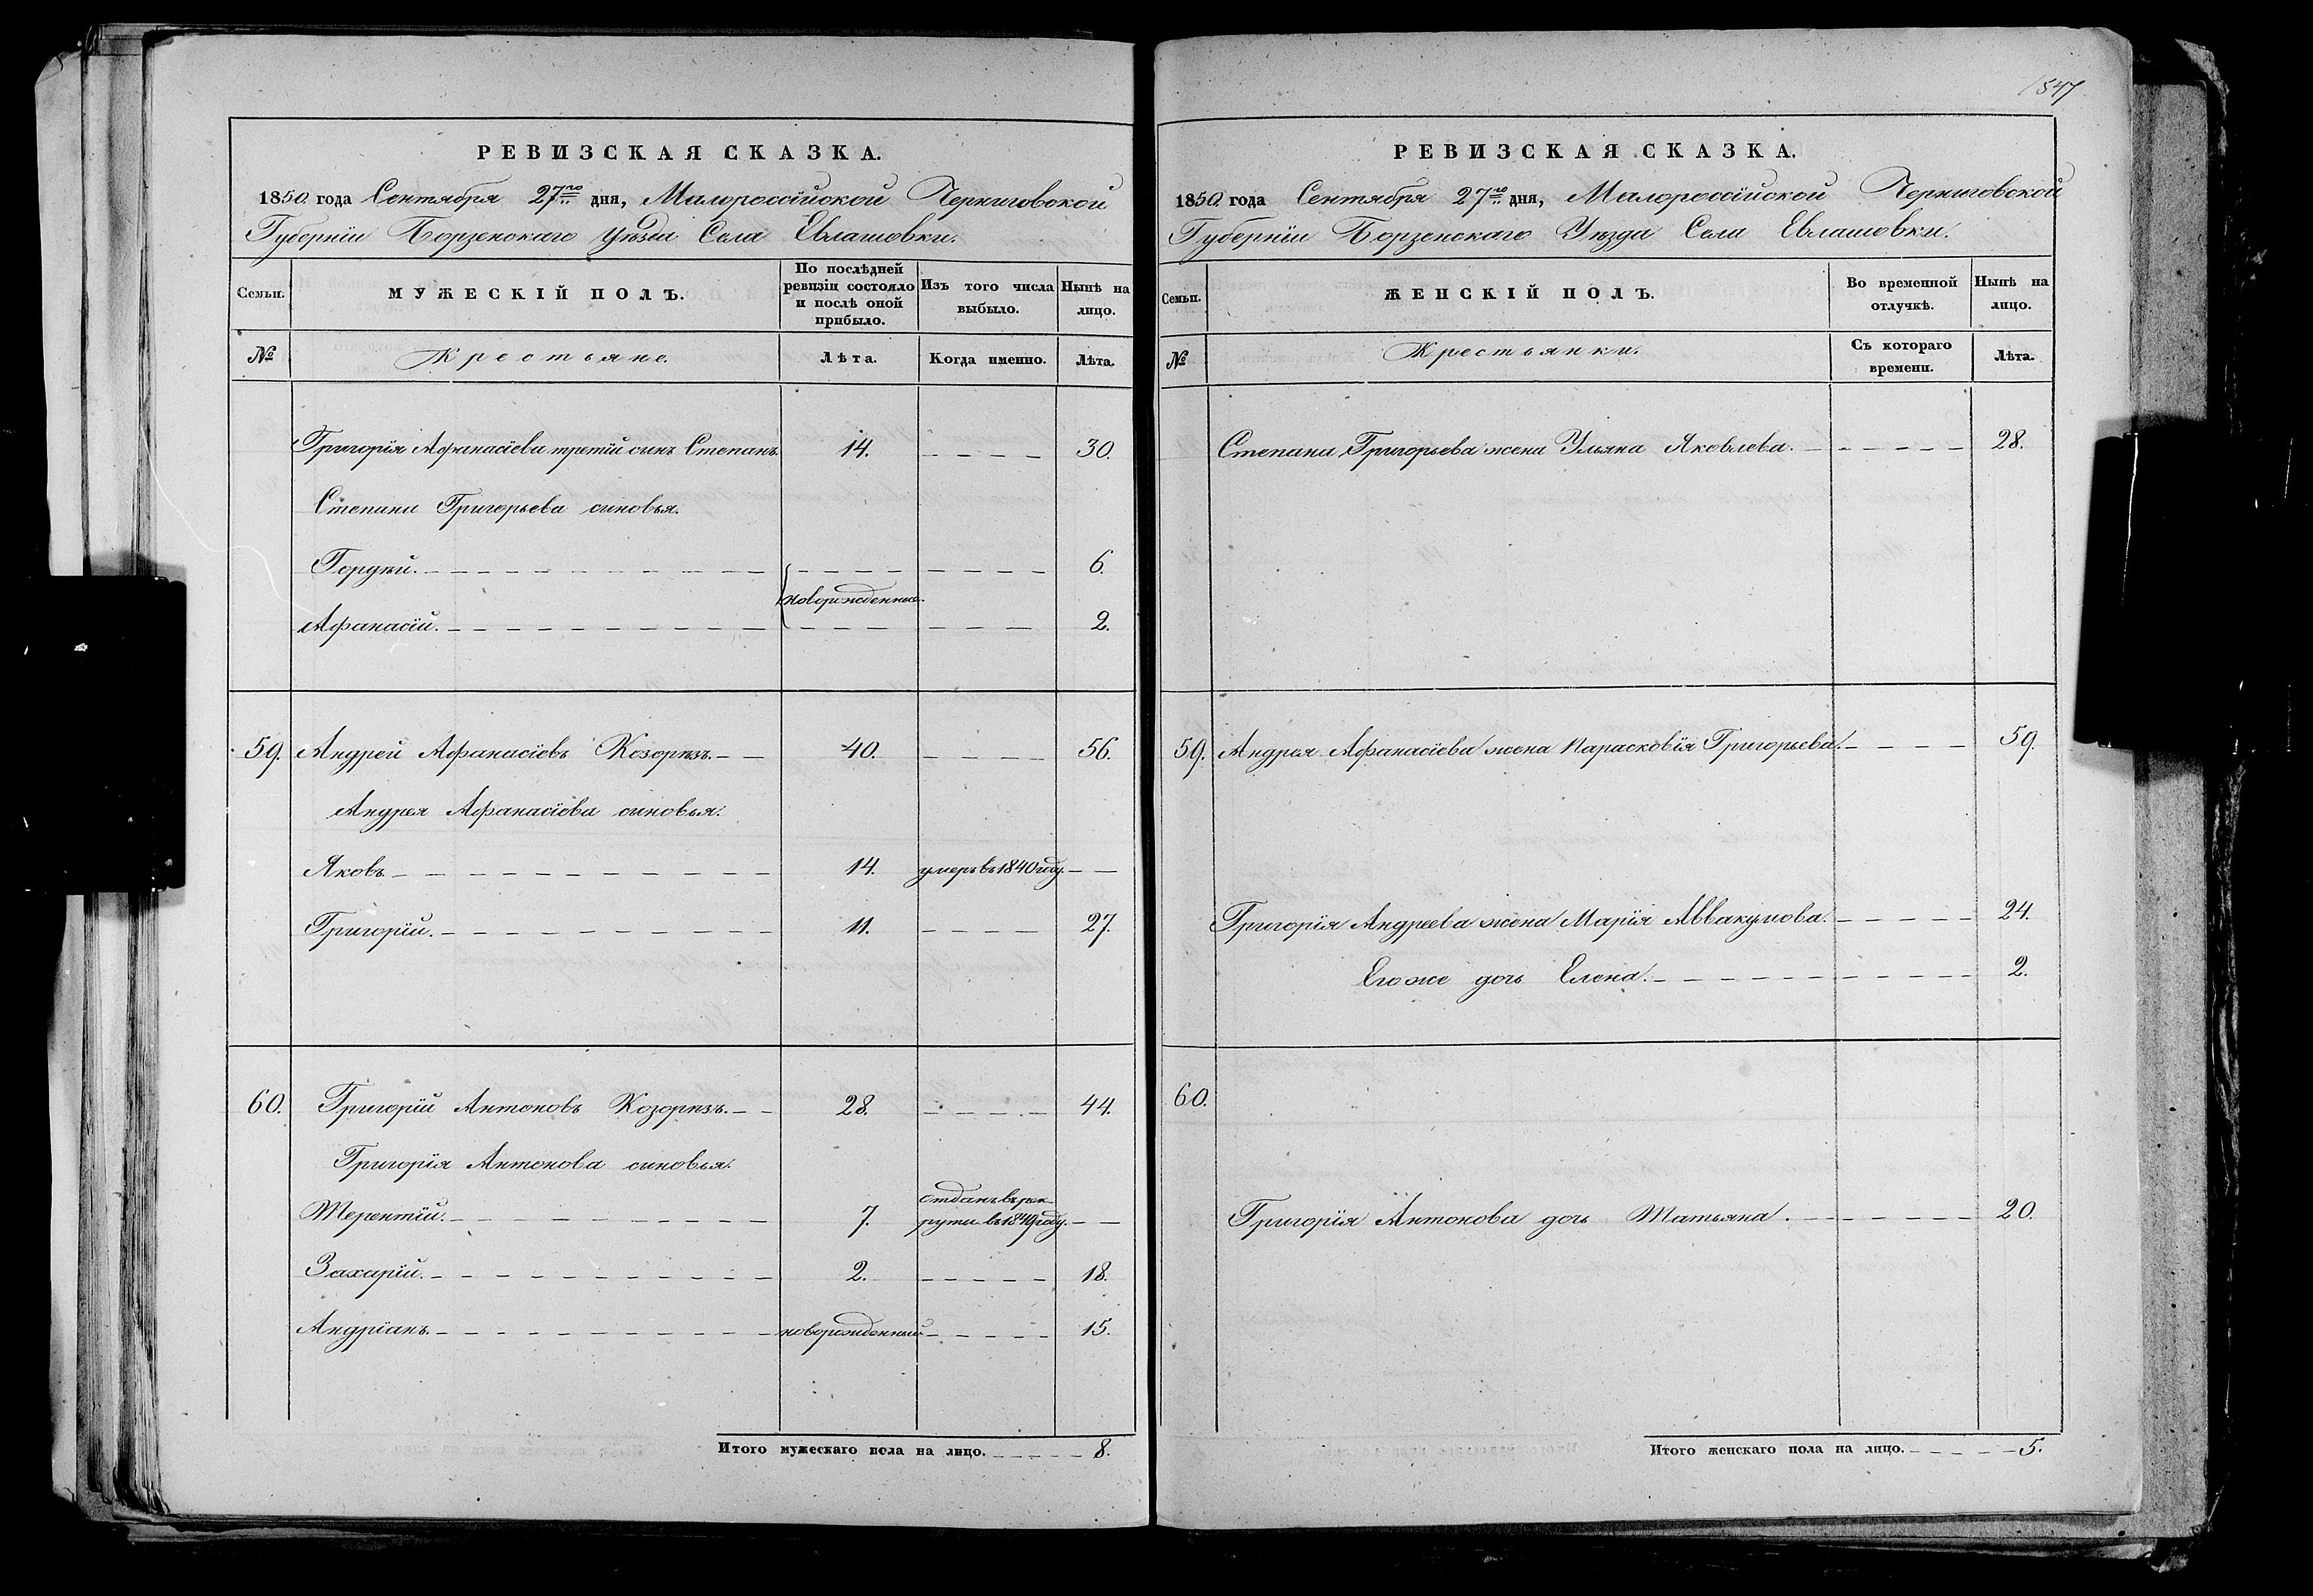 РЕВИЗСКАЯ СКАЗКА.
1850. года Сентября 27го дня, Малороссійской Черниговской
Губерніи Борзенскаго Уѣзда Села Евлашовки.
Семьи.
МУЖЕСКІЙ ПОЛЪ.
По послѣдней ревизіи состояло и послѣ оной прибыло.
Изъ того числа выбыло.
Нынѣ на лицо.
№
Крестьяне.
Лѣта.
Когда именно.
Лѣта.
Григорія Афанасіева третій сынъ Степанъ 14. 30.
Степана Григорьева сыновья.
Гордѣй. 6.
новорожденные.
Афанасій. 2.
59. Андрей Афанасіевъ Козорѣзъ. 40. 56.
Андрея Афанасіева сыновья.
Яковъ. 14. умеръ въ 1840 году.
Григорій. 11. 27.
60. Григорій Антоновъ Козорѣзъ. 28. 44.
Григорія Антонова сыновья.
отданъ въ рек-
Терентій. 7. руты въ 1849 году.
Захарій. 2. 18.
Андріанъ. новорожденный 15.
Итого мужескаго пола на лицо. 8.
1547
РЕВИЗСКАЯ СКАЗКА.
1850. года Сентября 27го дня, Малороссійской Черниговской
Губерніи Борзенскаго Уѣзда Села Евлашовки.
Семьи.
ЖЕНСКІЙ ПОЛЪ.
Во временной отлучкѣ.
Нынѣ на лицо.
№
Крестьянки.
Съ котораго времени.
Лѣта.
Степана Григорьева жена Ульяна Яковлева. 28.
59. Андрея Афанасіева жена Парасковія Григорьева. 59.
Григорія Андреева жена Марія Аввакумова. 24.
Его же дочь Елена. 2.
60.
Григорія Антонова дочь Татьяна. 20.
Итого женскаго пола на лицо. 5.